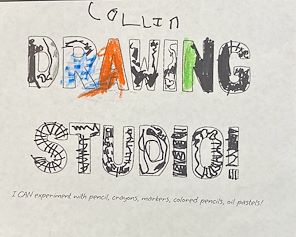 COLLIN
DRAWING
STUDIO!
I CAN experiment with pencil, crayons, markers, colored pencils, oil pastels!